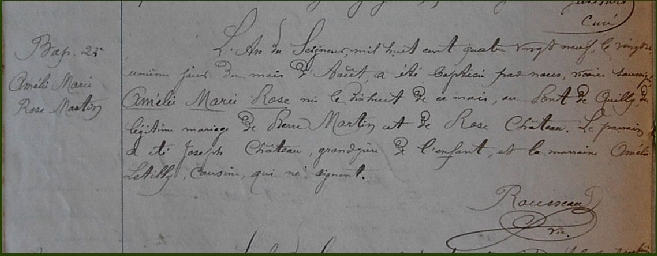 Curé
Bap. 25
Amélie Marie
Rose Martin
L'An du Seigneur, mil huit cent quatre vingt neuf, le vingt
unième jour du mois de Août a été baptisé par nous, vicaire soussigné
Amélie Marie Rose né le dixhuit de ce mois, au Pont de Quilly de
légitime mariage de Pierre Martin et de Rose Château. Le parrain
a été Joseph Château, grandpère de l'enfant, et la marraine Amélie
Letilly, cousine, qui ne signent.
Rousseau
vic.